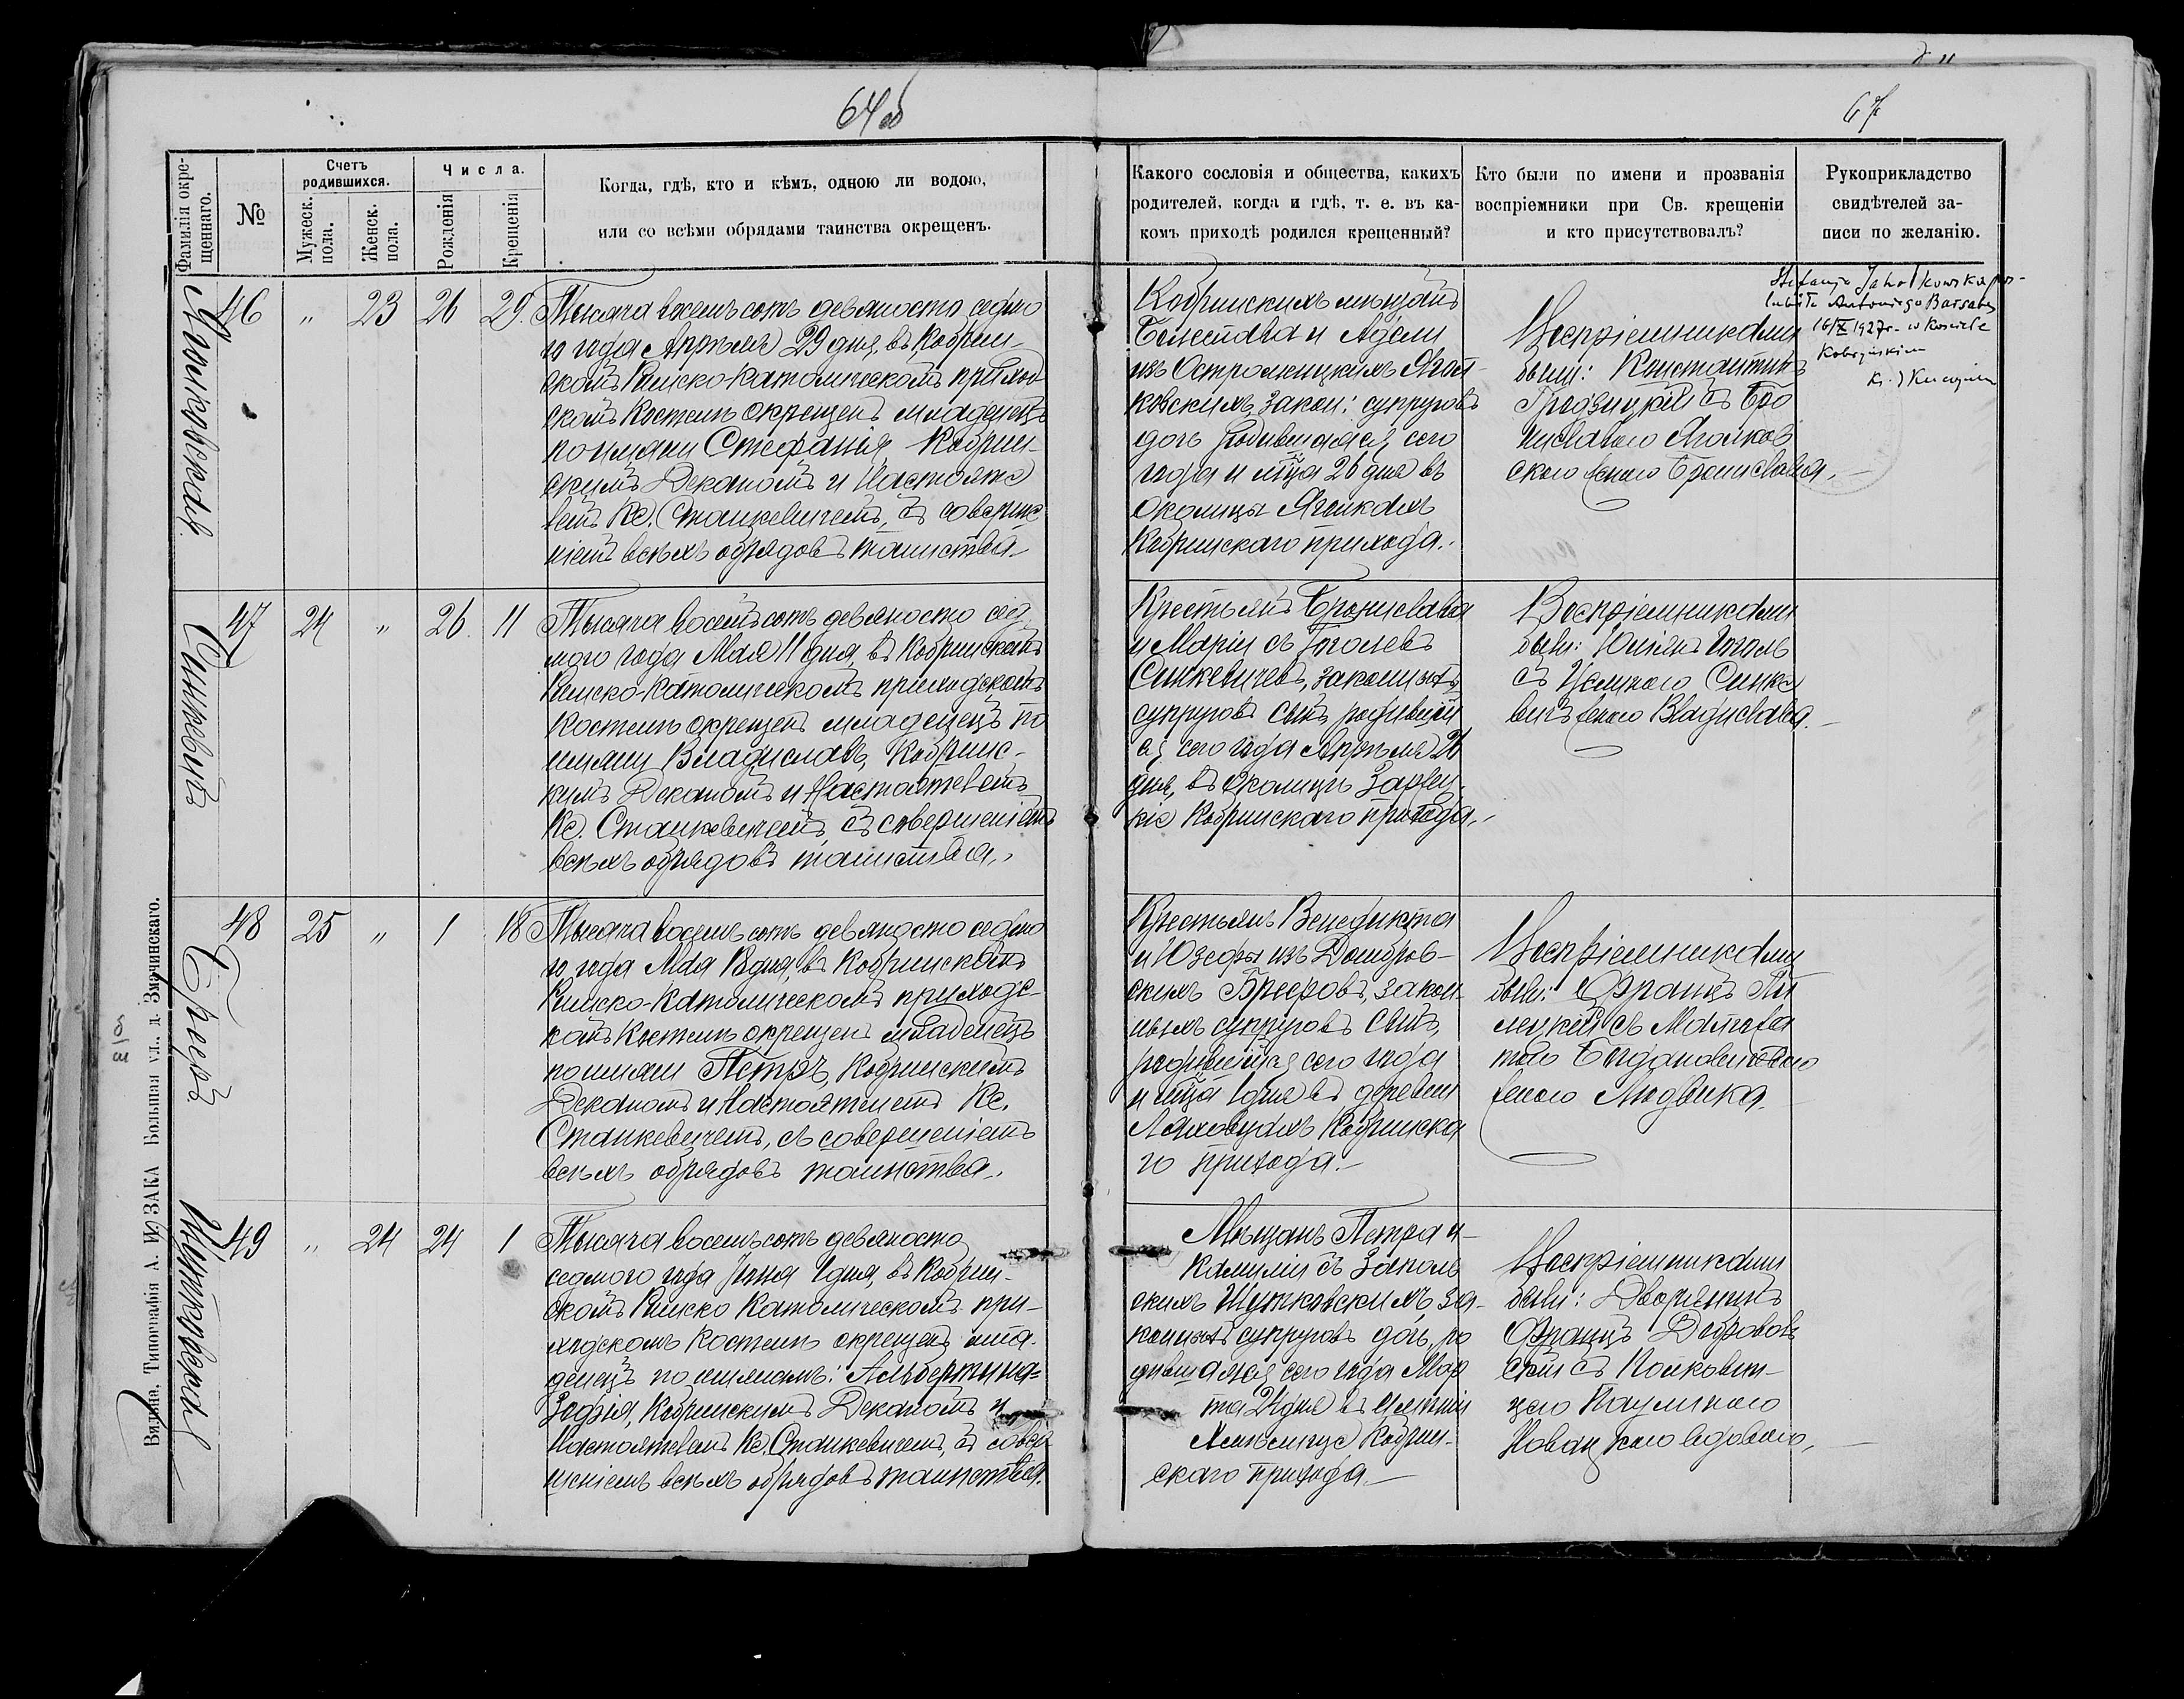 64 об
67
Фамилія окре-
щеннаго.
№
Счетъ
родившихся.
Мужеск.
пола.
Женск.
пола.
Числа.
Рожденія
Крещенія
Когда, гдѣ, кто и кѣмъ, одною ли водою,
или со всѣми обрядами таинства окрещенъ.
Какого сословія и общества, какихъ
родителей, когда и гдѣ, т. е. въ ка-
комъ приходѣ родился крещенный?
Кто были по имени и прозванія
воспріемники при Св. крещеніи
и кто присутствовалъ?
Рукоприкладство
свидѣтелей за-
писи по желанію.
46 " 23 26 29.
Тысяча восемьсотъ девяносто седмо
го года Апрѣля 29 дня, въ Кобрин-
скомъ Римско-Католическомъ приход
скомъ Костелѣ окрещенъ младенецъ
по имяни Стефанія, Кобрин-
скимъ Деканомъ и Настояте
лемъ Кс. Станкевичемъ, съ соверше
ніемъ всѣхъ обрядовъ таинства
Кобринскихъ мѣщанъ
Болеслава и Адели
изъ Остромецкихъ
ковскихъ, закон: супруговъ
дочь родившаяся сего
года и мца 26 дня въ
околицы
Кобринскаго прихода.
Воспріемниками
были: Константинъ
съ Бро
ниславою
скою женою Бронислава.
1927 r. w Kościele
Kobryńskim
47 24 " 26 11
Синкевичъ
Тысяча восемьсотъ девяносто сед
мого года Мая 11 дня, въ Кобринскомъ
Римско-Католическомъ приходскомъ
Костелѣ окрещенъ младенецъ по
имяни Владиславъ, Кобринс-
кимъ Деканомъ и Настоятелемъ
Кс. Станкевичемъ, съ совершеніемъ
всѣхъ обрядовъ таинства.
Крестьянъ Бронислава
и Маріи съ Гоголевъ
Синкевичевъ, законныхъ
супруговъ сынъ, родившій
ся сего года Апрѣля 26
дня, въ околицѣ
Кобринскаго прихода.
Воспріемниками
были: Юліянъ Гоголь
съ Синке
вичъ женою Владислава.
48 25 " 1 18
Тысяча восемьсотъ девяносто седмо
го года Мая 18 дня, въ Кобринскомъ
Римско-Католическомъ приходс-
комъ Костелѣ окрещенъ младенецъ
по имяни Петръ, Кобринскимъ
Деканомъ и Настоятелемъ Кс.
Станкевичемъ, съ совершеніемъ
всѣхъ обрядовъ таинства.
Крестьянъ Венедикта
и Юзефы изъ Домбров-
скихъ закон-
ныхъ супруговъ сынъ,
родившійся сего года
и мца 1 дня въ деревни
Ляховцахъ Кобринска
го прихода.
Воспріемниками
были: Францъ
съ
Богдановичевою
женою Людвика.
49 " 24 24 1
Шутковская
Тысяча восемьсотъ девяносто
седмого года Іюня 1 дня, въ Кобрин-
скомъ Римско Католическомъ при-
ходскомъ Костелѣ окрещенъ мла-
денецъ по имянамъ: Альбертина-
Зофія, Кобринскимъ Деканомъ и
Настоятелемъ Кс. Станкевичемъ, съ совер
шеніемъ всѣхъ обрядовъ таинства.
Мѣщанъ Петра и
Камиліи съ
скихъ Шутковскихъ за-
конныхъ супруговъ дочь, ро
дившаяся сего года Мар
та 24 дня въ имѣніи
Кобрин-
скаго прихода.
Воспріемниками
были: Дворянинъ
Францъ
скій съ
цею
вдовою.
Вильна. Типографія А. И. ЗАКА Большая ул., д. Змачинскаго.